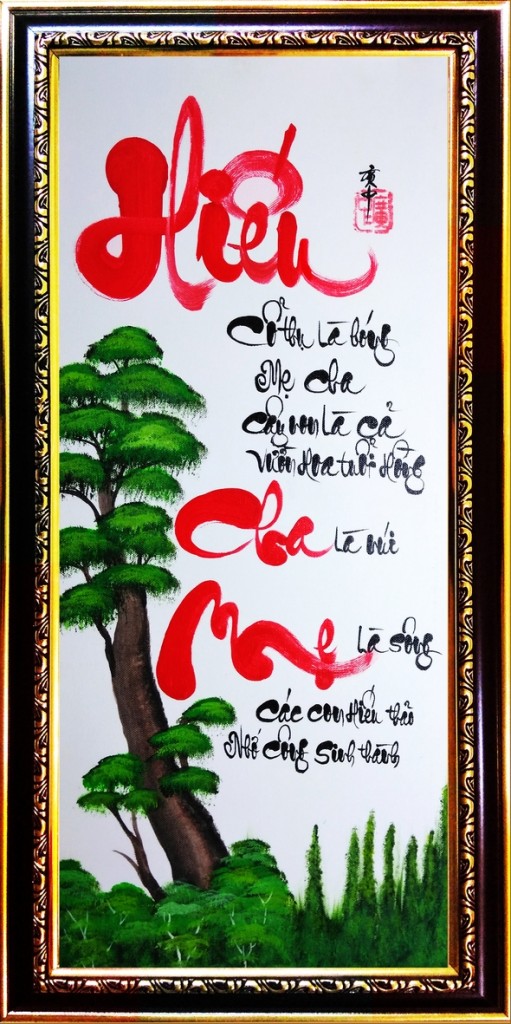 Hiếu
Cổ thụ là bóng
Mẹ Cha
Cây non là cả
Vườn Hoa tuổi Hồng
Cha là núi
Mẹ là sông
Các con Hiếu thảo
Nhớ Công Sinh thành